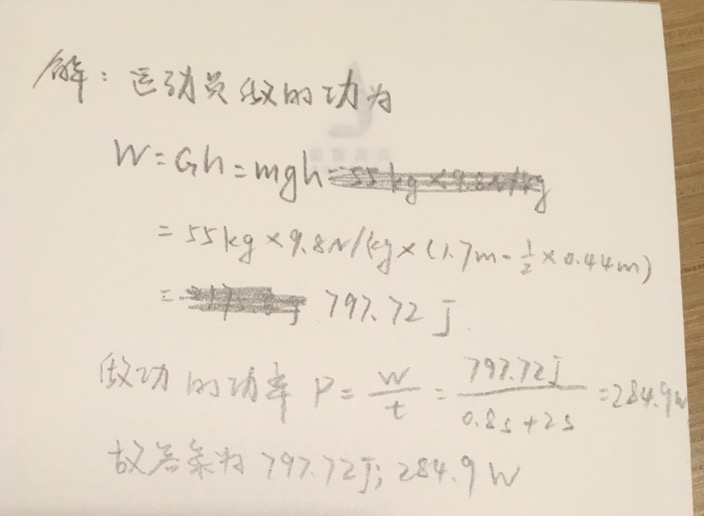 解：运动员做的功为
W=Gh=mgh
=55kg×9.8N/kg×(1.7m-½×0.44m)
= 797.72J
做功的功率 P=W/t=797.72J/0.8s+2s=284.9W
故答案为 797.72J; 284.9W